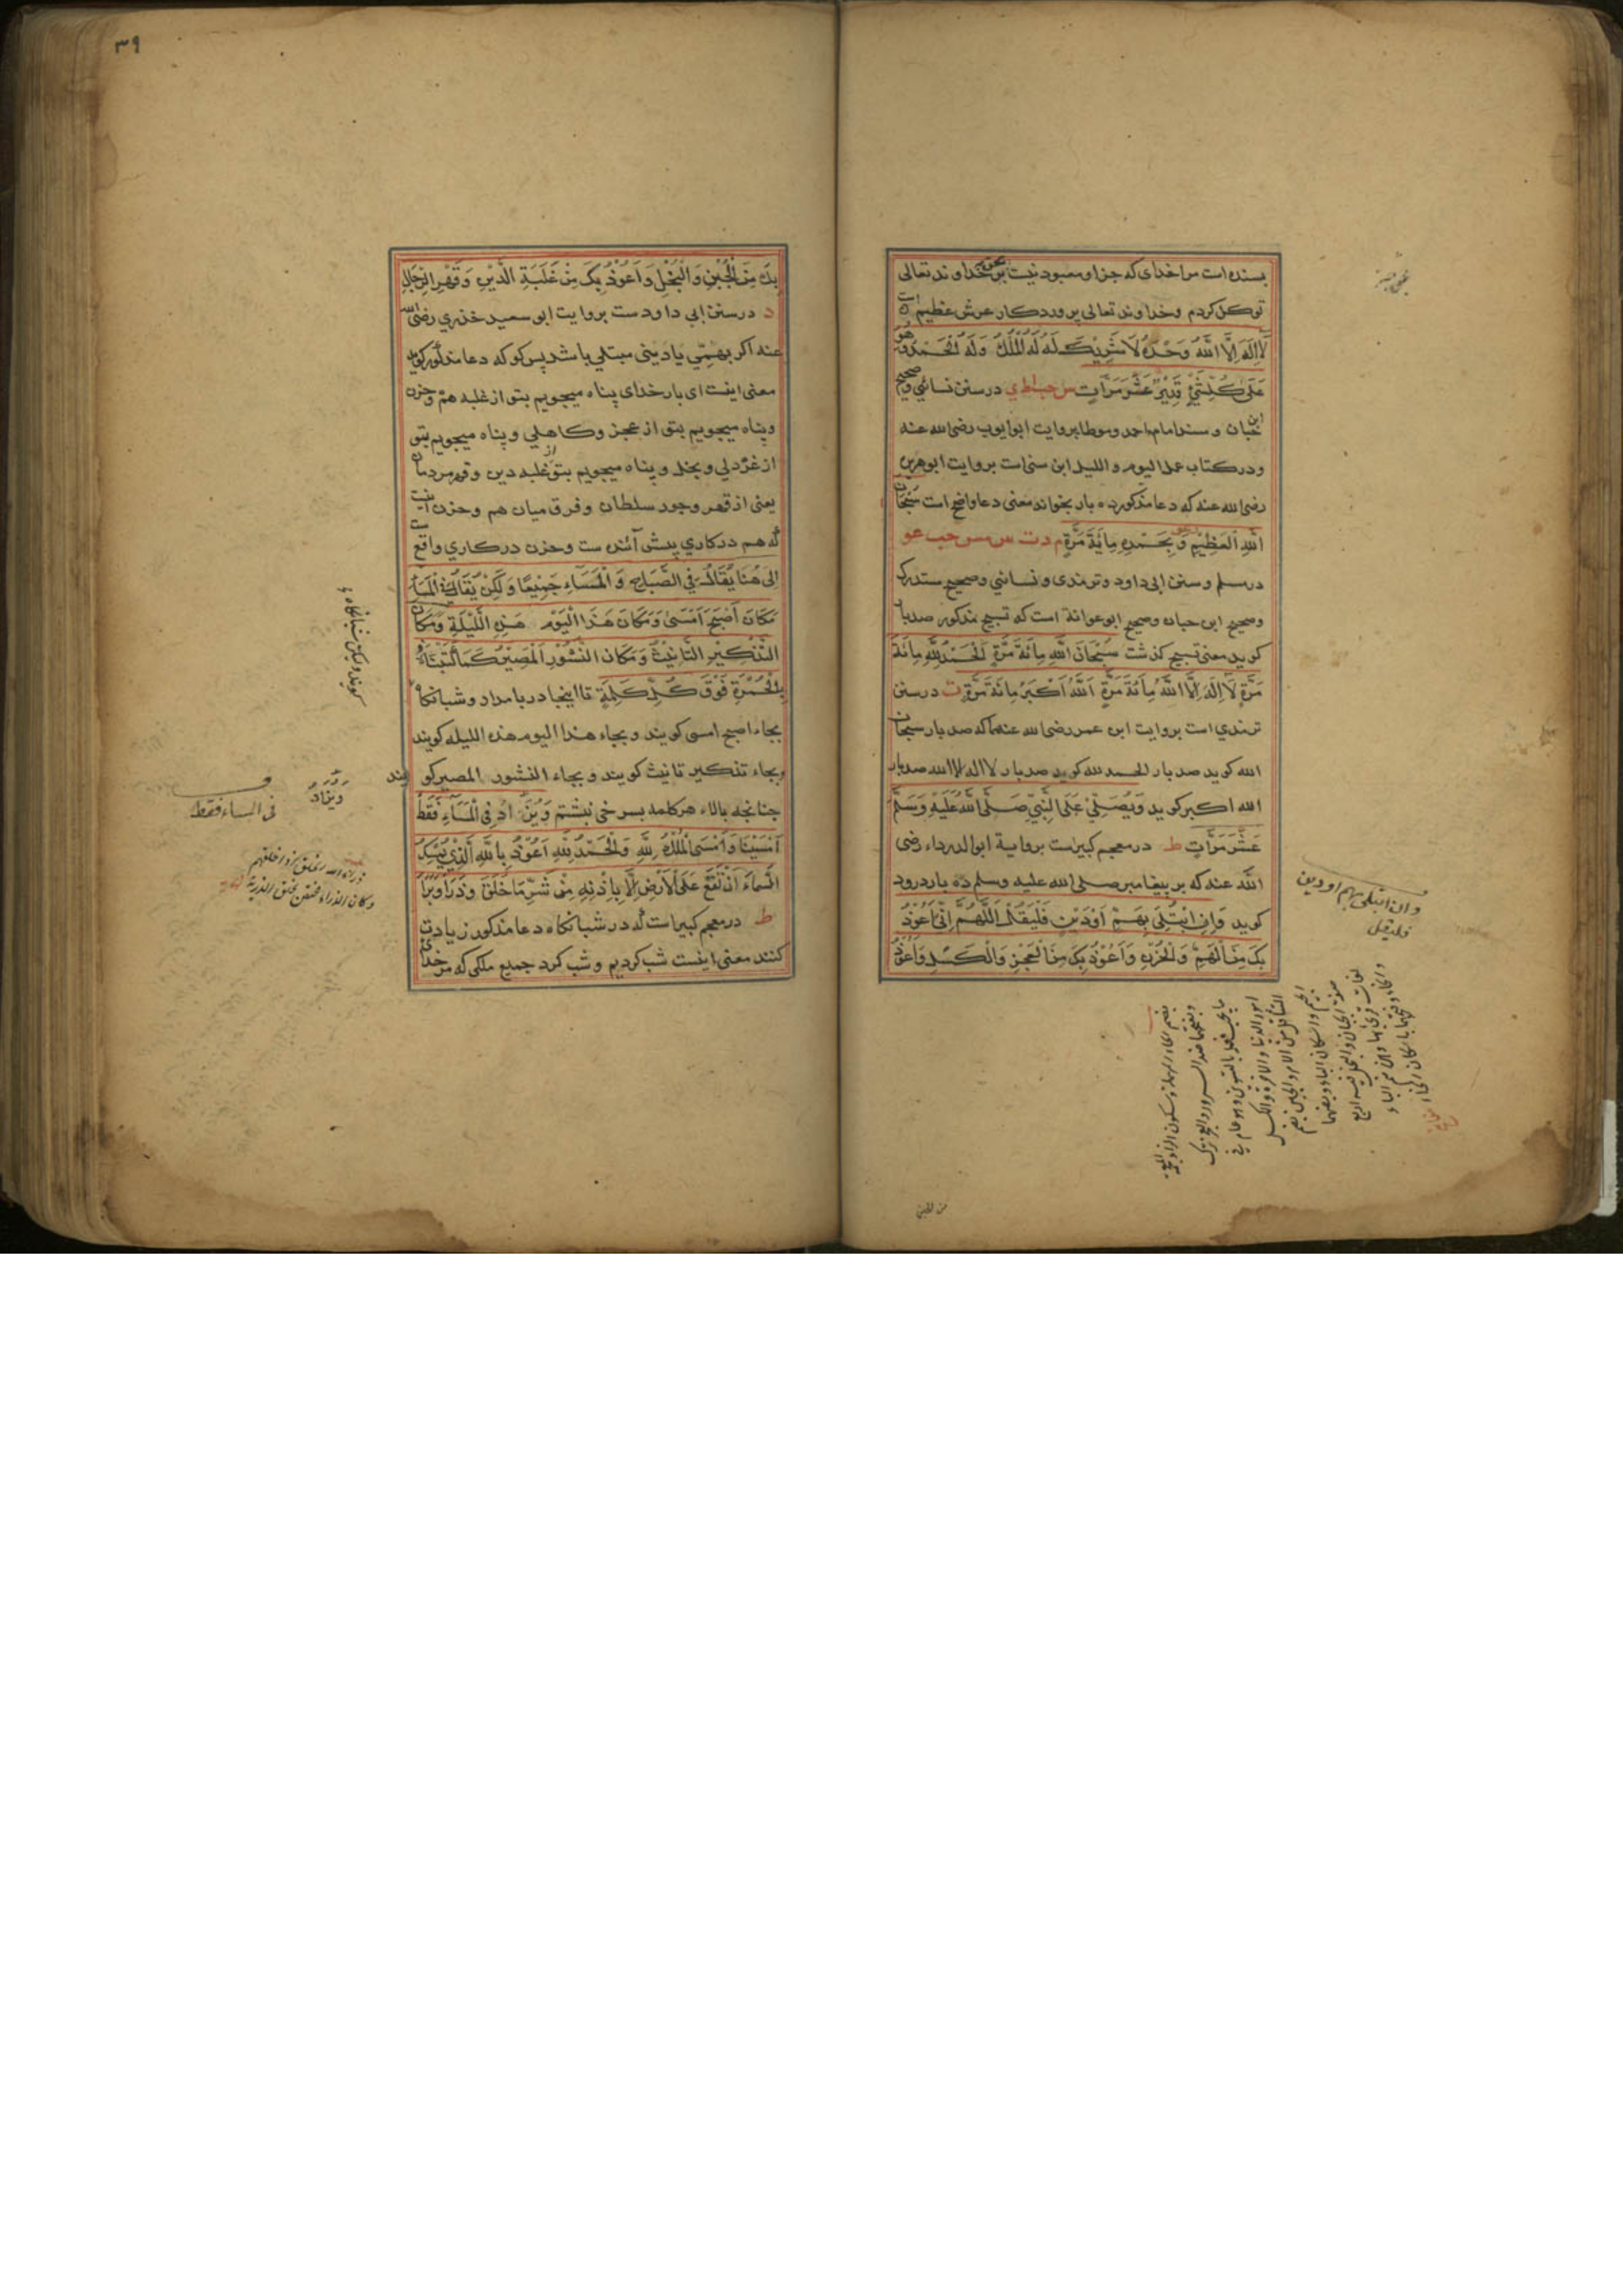 بسنده است مرا خدای که جز او معبود نیست بر خداوند تعالی
توکل کردم وخداوند تعالی پروردکار عرش عظیم است
لَا اِلَهَ اِلَّا اللَّهُ وَحْدَهُ لَا شَرِيْكَ لَهُ لَهُ الْمُلْكُ وَلَهُ الْحَمْدُ وَهُوَ
عَلَى كُلِّ شَيْءٍ قَدِيْرٌ عَشْرَ مَرَّاتٍ س حب اط ي در سنن نسائي و صحيح
ابن حبان و مسند امام احمد وموطا بروایت ابو ایوب رضی الله عنه
ودر کتاب عمل الیوم و اللیل ابن سنی است بروایت ابو هریره
رضی الله عنه که دعا مذکور ده بار بخواند معنی دعا واضح است سُبْحَانَ
اللَّهِ الْعَظِيْمِ وَبِحَمْدِهِ مِائَةَ مَرَّةٍ م د ت س مس حب عو
در مسلم و سنن ابی داود و ترمذی و نسائي وصحیح مستدرک
وصحیح ابن حبان وصحیح ابو عوانة است که تسبیح مذکور صد بار
کوید معنی تسبیح کذشت سُبْحَانَ اللَّهِ مِائَةَ مَرَّةٍ اَلْحَمْدُ لِلَّهِ مِائَةَ
مَرَّةٍ لَا اِلَهَ اِلَّا اللَّهُ مِائَةَ مَرَّةٍ اَللَّهُ اَكْبَرُ مِائَةَ مَرَّةٍ ت در سنن
ترمذي است بروایت ابن عمر رضی الله عنهما که صد بار سبحان
الله کوید صد بار الحمد لله کوید صد بار لا اله الا الله صد بار
الله اکبر کوید وَيُصَلِّيْ عَلَى النَّبِيِّ صَلَّى اللَّهُ عَلَيْهِ وَسَلَّمَ
عَشْرَ مَرَّاتٍ ط در معجم کبیرست بروایة ابو الدرداء رضی
الله عنه که بر پیغامبر صلی الله علیه وسلم ده بار درود
کوید وَاِنِ ابْتُلِيَ بِهَمٍّ اَوْ دَيْنٍ فَلْيَقُلْ اَللَّهُمَّ اِنِّيْ اَعُوْذُ
بِكَ مِنَ الْهَمِّ وَالْحُزْنِ وَاَعُوْذُ بِكَ مِنَ الْعَجْزِ وَالْكَسَلِ وَاَعُوْذُ
وان ابتلی بهم او دین
فلیقل
من الجبن
٣٩
بِكَ مِنَ الْجُبْنِ وَالْبُخْلِ وَاَعُوْذُ بِكَ مِنْ غَلَبَةِ الدَّيْنِ وَقَهْرِ الرِّجَالِ
د در سنن ابي داود ست بروایت ابو سعید خدري رضی الله
عنه اکر بهمّي یا دینی مبتلي باشد پس کو که دعا مذکور کوید
معنی اینست ای بار خدای پناه میجویم بتو از غلبه همّ وحزن
وپناه میجویم بتو از عجز وکاهلي وپناه میجویم بتو
از غردلي وبخل وپناه میجویم بتو از غلبه دین وقهر مردمان
یعنی از قهر وجور سلطان وفرق میان هم وحزن آنست
که هم در کاري پیش آئنده ست وحزن در کاري واقع
اِلَى هُنَا يُقَالُ فِي الصَّبَاحِ وَالْمَسَاءِ جَمِيْعًا وَلَكِنْ يُقَالُ فِي الْمَسَاءِ
مَكَانَ اَصْبَحَ اَمْسَى وَمَكَانَ هَذَا الْيَوْمِ هَذِهِ اللَّيْلَةِ وَمَكَانَ
التَّذْكِيْرِ التَّانِيْثُ وَمَكَانَ النُّشُوْرِ الْمَصِيْرُ كَمَا كَتَبْنَاهُ
بِالْحُمْرَةِ فَوْقَ كُلِّ كَلِمَةٍ تا اینجا در بامداد وشبانکاه
بجاء اصبح امسی کویند وبجاء هذا الیوم هذه اللیله کویند
وبجاء تذکیر تانیث کویند وبجاء النشور المصیر کویند
چنانچه بالاء هر کلمه بسرخی نبشتم وَيُزَادُ فِي الْمَسَاءِ فَقَطْ
اَمْسَيْنَا وَاَمْسَى الْمُلْكُ لِلَّهِ وَالْحَمْدُ لِلَّهِ اَعُوْذُ بِاللَّهِ الَّذِيْ يُمْسِكُ
السَّمَاءَ اَنْ تَقَعَ عَلَى الْاَرْضِ اِلَّا بِاِذْنِهِ مِنْ شَرِّ مَا خَلَقَ وَذَرَاَ وَبَرَاَ
ط در معجم کبیر است که در شبانکاه دعا مذکور زیادت
کنند معنی اینست شب کردیم وشب کرد جمیع ملکی که مر خدای
وَيُزَادُ
فی المساء فقط